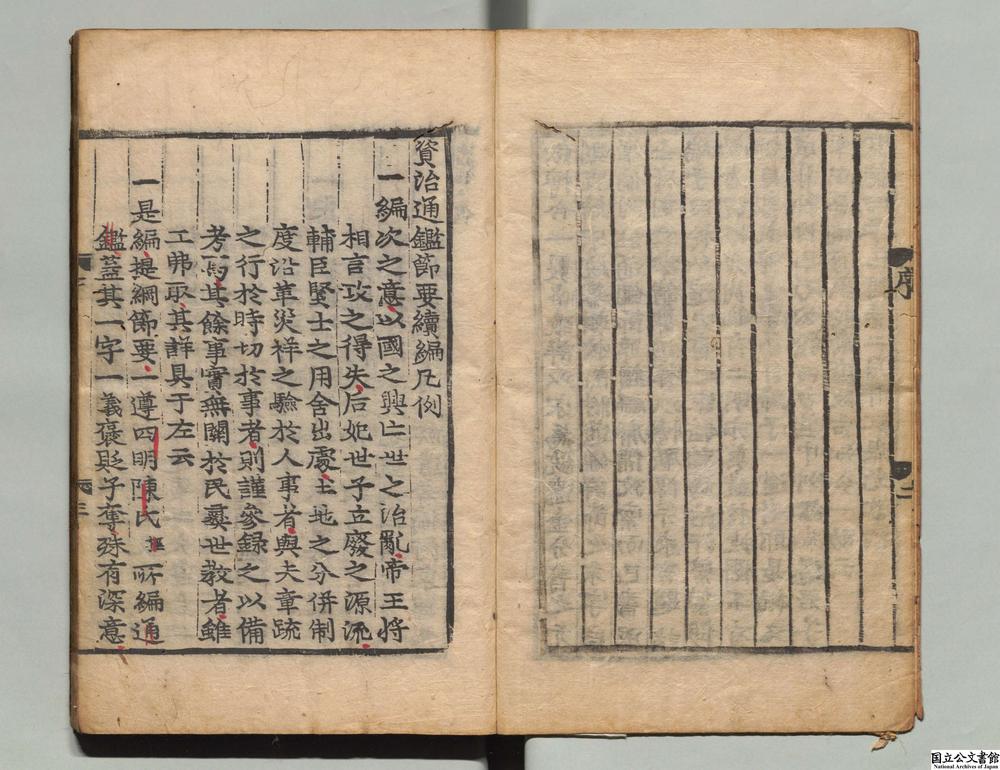 序
二
資治通鑑節要續編凡例
一編次之意以國之興亡世之治亂帝王將
相言攻之得失后妃世子立廢之源流
輔臣賢士之用舍出處土地之分併制
度沿革災祥之驗於人事者與夫章疏
之行於時切於事者則謹參錄之以備
考焉其餘事實無關於民彛世教者雖
工弗取其詳具于左云
一是編提綱節要一遵四明陳氏桱所編通
鑑蓋其一字一義褒貶予奪殊有深意
三
国立公文書館
National Archives of Japan